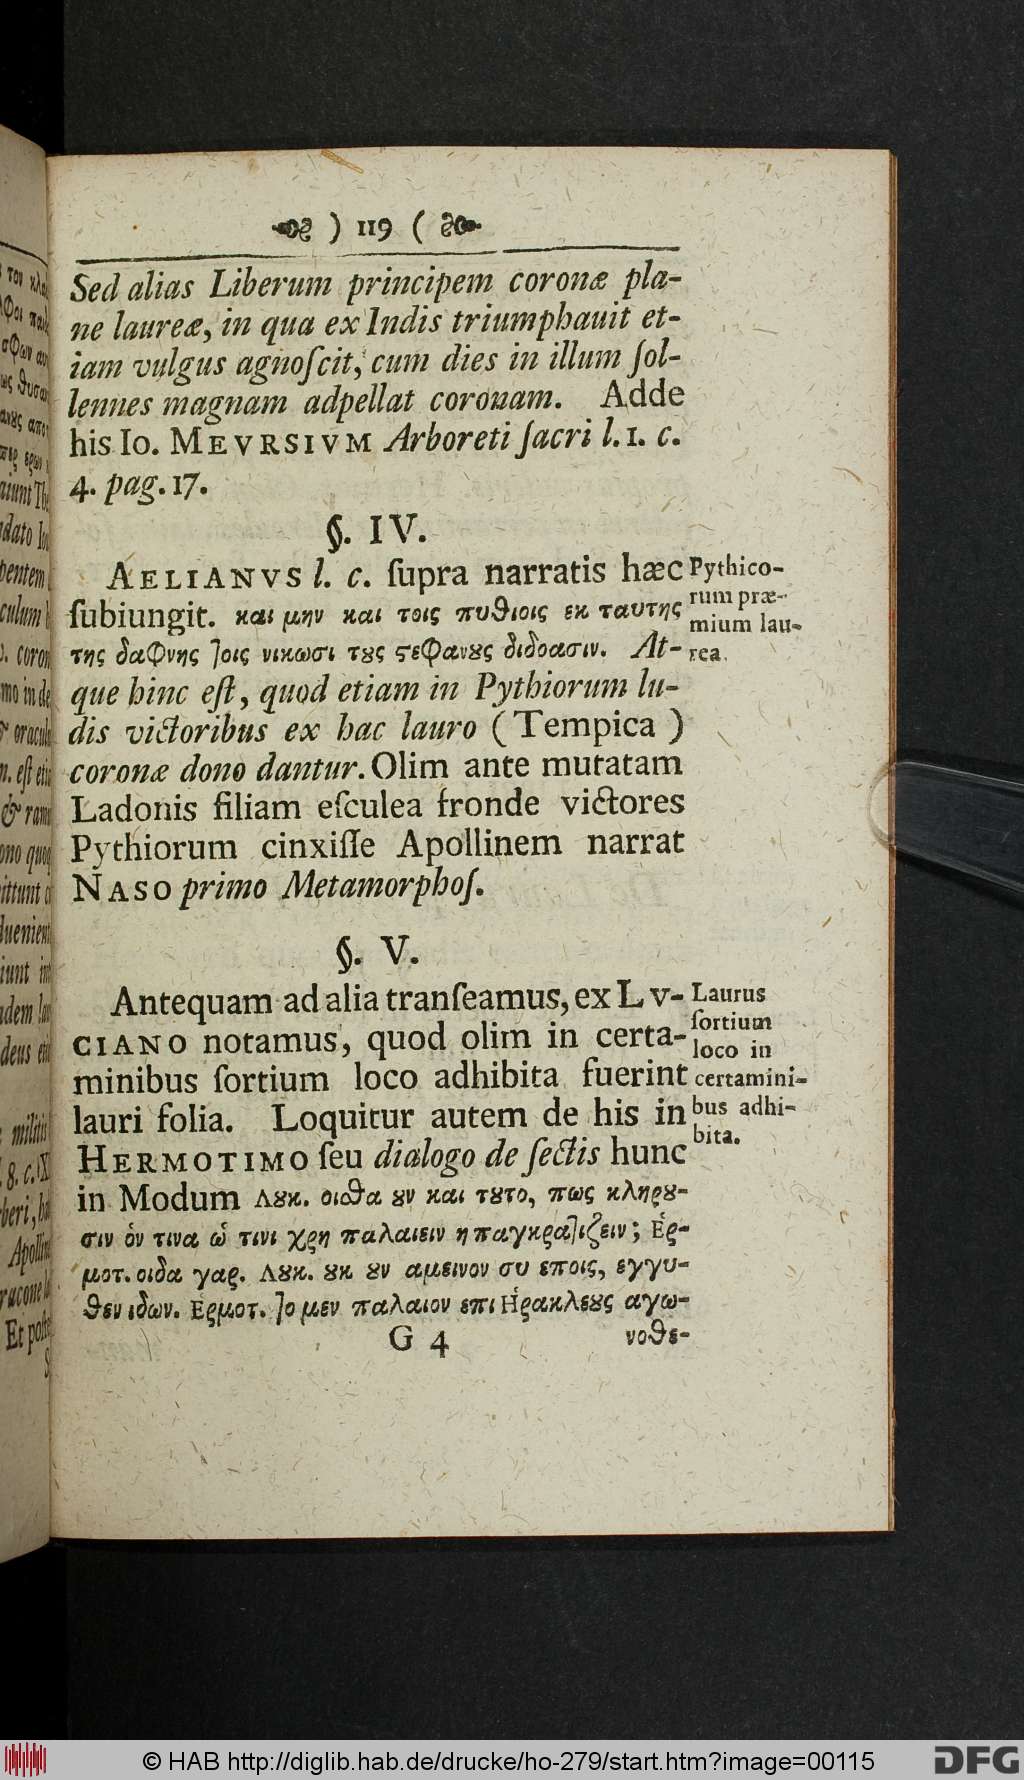 ) 119 (
Sed alias Liberum principem coronæ pla-
ne laureæ, in qua ex Indis triumphauit et-
iam vulgus agnoſcit, cum dies in illum ſol-
lennes magnam adpellat coronam. Adde
his Io. MEVRSIVM Arboreti ſacri l. 1. c.
4. pag. 17.
§. IV.
AELIANVS l. c. ſupra narratis hæc
ſubiungit. και μην και τοις πυθιοις εκ ταυτης
της δαφνης τοις νικωσι τȣς ϛεφανȣς διδοασιν. At-
que hinc eſt, quod etiam in Pythiorum lu-
dis victoribus ex hac lauro (Tempica)
coronæ dono dantur. Olim ante mutatam
Ladonis filiam eſculea fronde victores
Pythiorum cinxiſſe Apollinem narrat
NASO primo Metamorphoſ.
Pythico-
rum præ-
mium lau-
rea.
§. V.
Antequam ad alia tranſeamus, ex LV-
CIANO notamus, quod olim in certa-
minibus ſortium loco adhibita fuerint
lauri folia. Loquitur autem de his in
HERMOTIMO ſeu dialogo de ſectis hunc
in Modum Λȣκ. οισθα ȣν και τȣτο, πως κληρȣ-
σιν ὁν τινα ὡ τινι χρη παλαιειν η παγκρατιζειν; Ἑρ-
μοτ. οιδα γαρ. Λȣκ. ȣκ ȣν αμεινον συ εποις, εγγυ-
θεν ιδων. Ερμοτ. το μεν παλαιον επι Ἡρακλεȣς αγω-
Laurus
ſortium
loco in
certamini-
bus adhi-
bita.
G 4
νοθε-
© HAB http://diglib.hab.de/drucke/ho-279/start.htm?image=00115
DFG